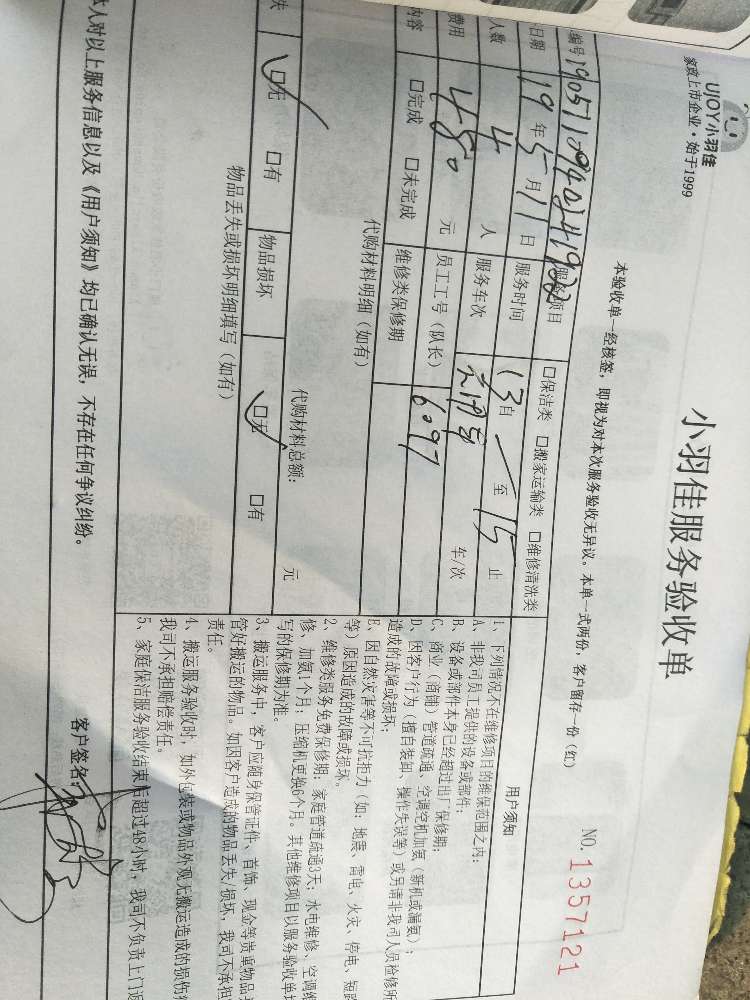 UJOY小羽佳
家政上市企业·始于1999
小羽佳服务验收单
NO. 1357121
本验收单一经核签，即视为对本次服务验收无异议。本单一式两份，客户留存一份（红）
编号
服务项目 □保洁类 □搬家运输类 □维修清洗类
日期 19年5月11日 服务时间 13自 至15止
人数 4 人 服务车次 车/次
费用 480 元 员工工号（队长） 6097
内容 □完成 □未完成 维修类保修期
代购材料明细（如有）
代购材料总额： 元
失 □无 □有 物品损坏 □无 □有
物品丢失或损坏明细填写（如有）
用户须知
1、下列情况不在维修项目的维保范围之内：
A、非我司员工提供的设备或部件；
B、设备或部件本身已经超过出厂保修期；
C、商业（商铺）管道疏通、空调空机加氨（新机或漏氨）；
D、因客户行为（擅自装卸、操作失误等）或另请非我司人员检修所
造成的故障或损坏；
E、因自然灾害等不可抗拒力（如：地震、雷电、火灾、停电、短路
等）原因造成的故障或损坏。
2、维修类服务免费保修期：家庭管道疏通3天；水电维修、空调维
修、加氨1个月；压缩机更换6个月。其他维修项目以服务验收单填
写的保修期为准。
3、搬运服务中，客户应随身保管证件、首饰、现金等贵重物品
管好搬运的物品。如因客户造成的物品丢失/损坏，我司不承担
责任。
4、搬运服务验收时，如外包装或物品外观无搬运造成的损伤
我司不承担赔偿责任。
5、家庭保洁服务验收结束后超过48小时，我司不负责上门返
本人对以上服务信息以及《用户须知》均已确认无误，不存在任何争议纠纷。
客户签名：